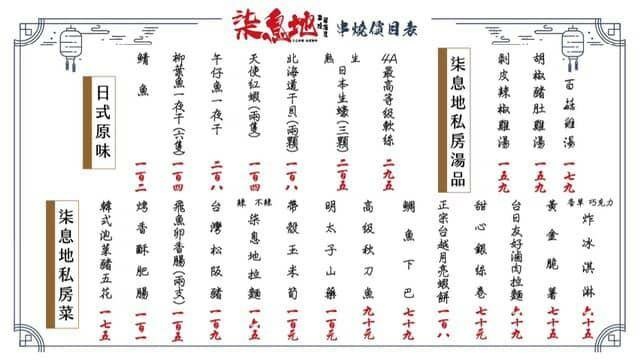 柒息地 串燒價目表
柒息地私房湯品
百菇雞湯 一七九
胡椒豬肚雞湯 一五九
剝皮辣椒雞湯 一五九
4A最高等級軟絲 二九五
生 熟 日本生蠔(三顆) 二百五
北海道干貝(兩顆) 一百八
天使紅蝦(兩隻) 一百四
午仔魚一夜干 二百八
柳葉魚一夜干(六隻) 一百四
鯖魚 一百二
日式原味
香草 巧克力 炸冰淇淋 六十五
黃金脆薯 五十五
台日友好滷肉拉麵 六十九
甜心銀絲卷 七十元
正宗台越月亮蝦餅 一百八
鯛魚下巴 七十九
高級秋刀魚 九十元
明太子山藥 一百元
帶殼玉米筍 一百元
辣 不辣 柒息地拉麵 一六五
台灣松阪豬 一百九
飛魚卵香腸(兩支) 一百五
烤香酥肥腸 一百一
韓式泡菜豬五花 一七五
柒息地私房菜